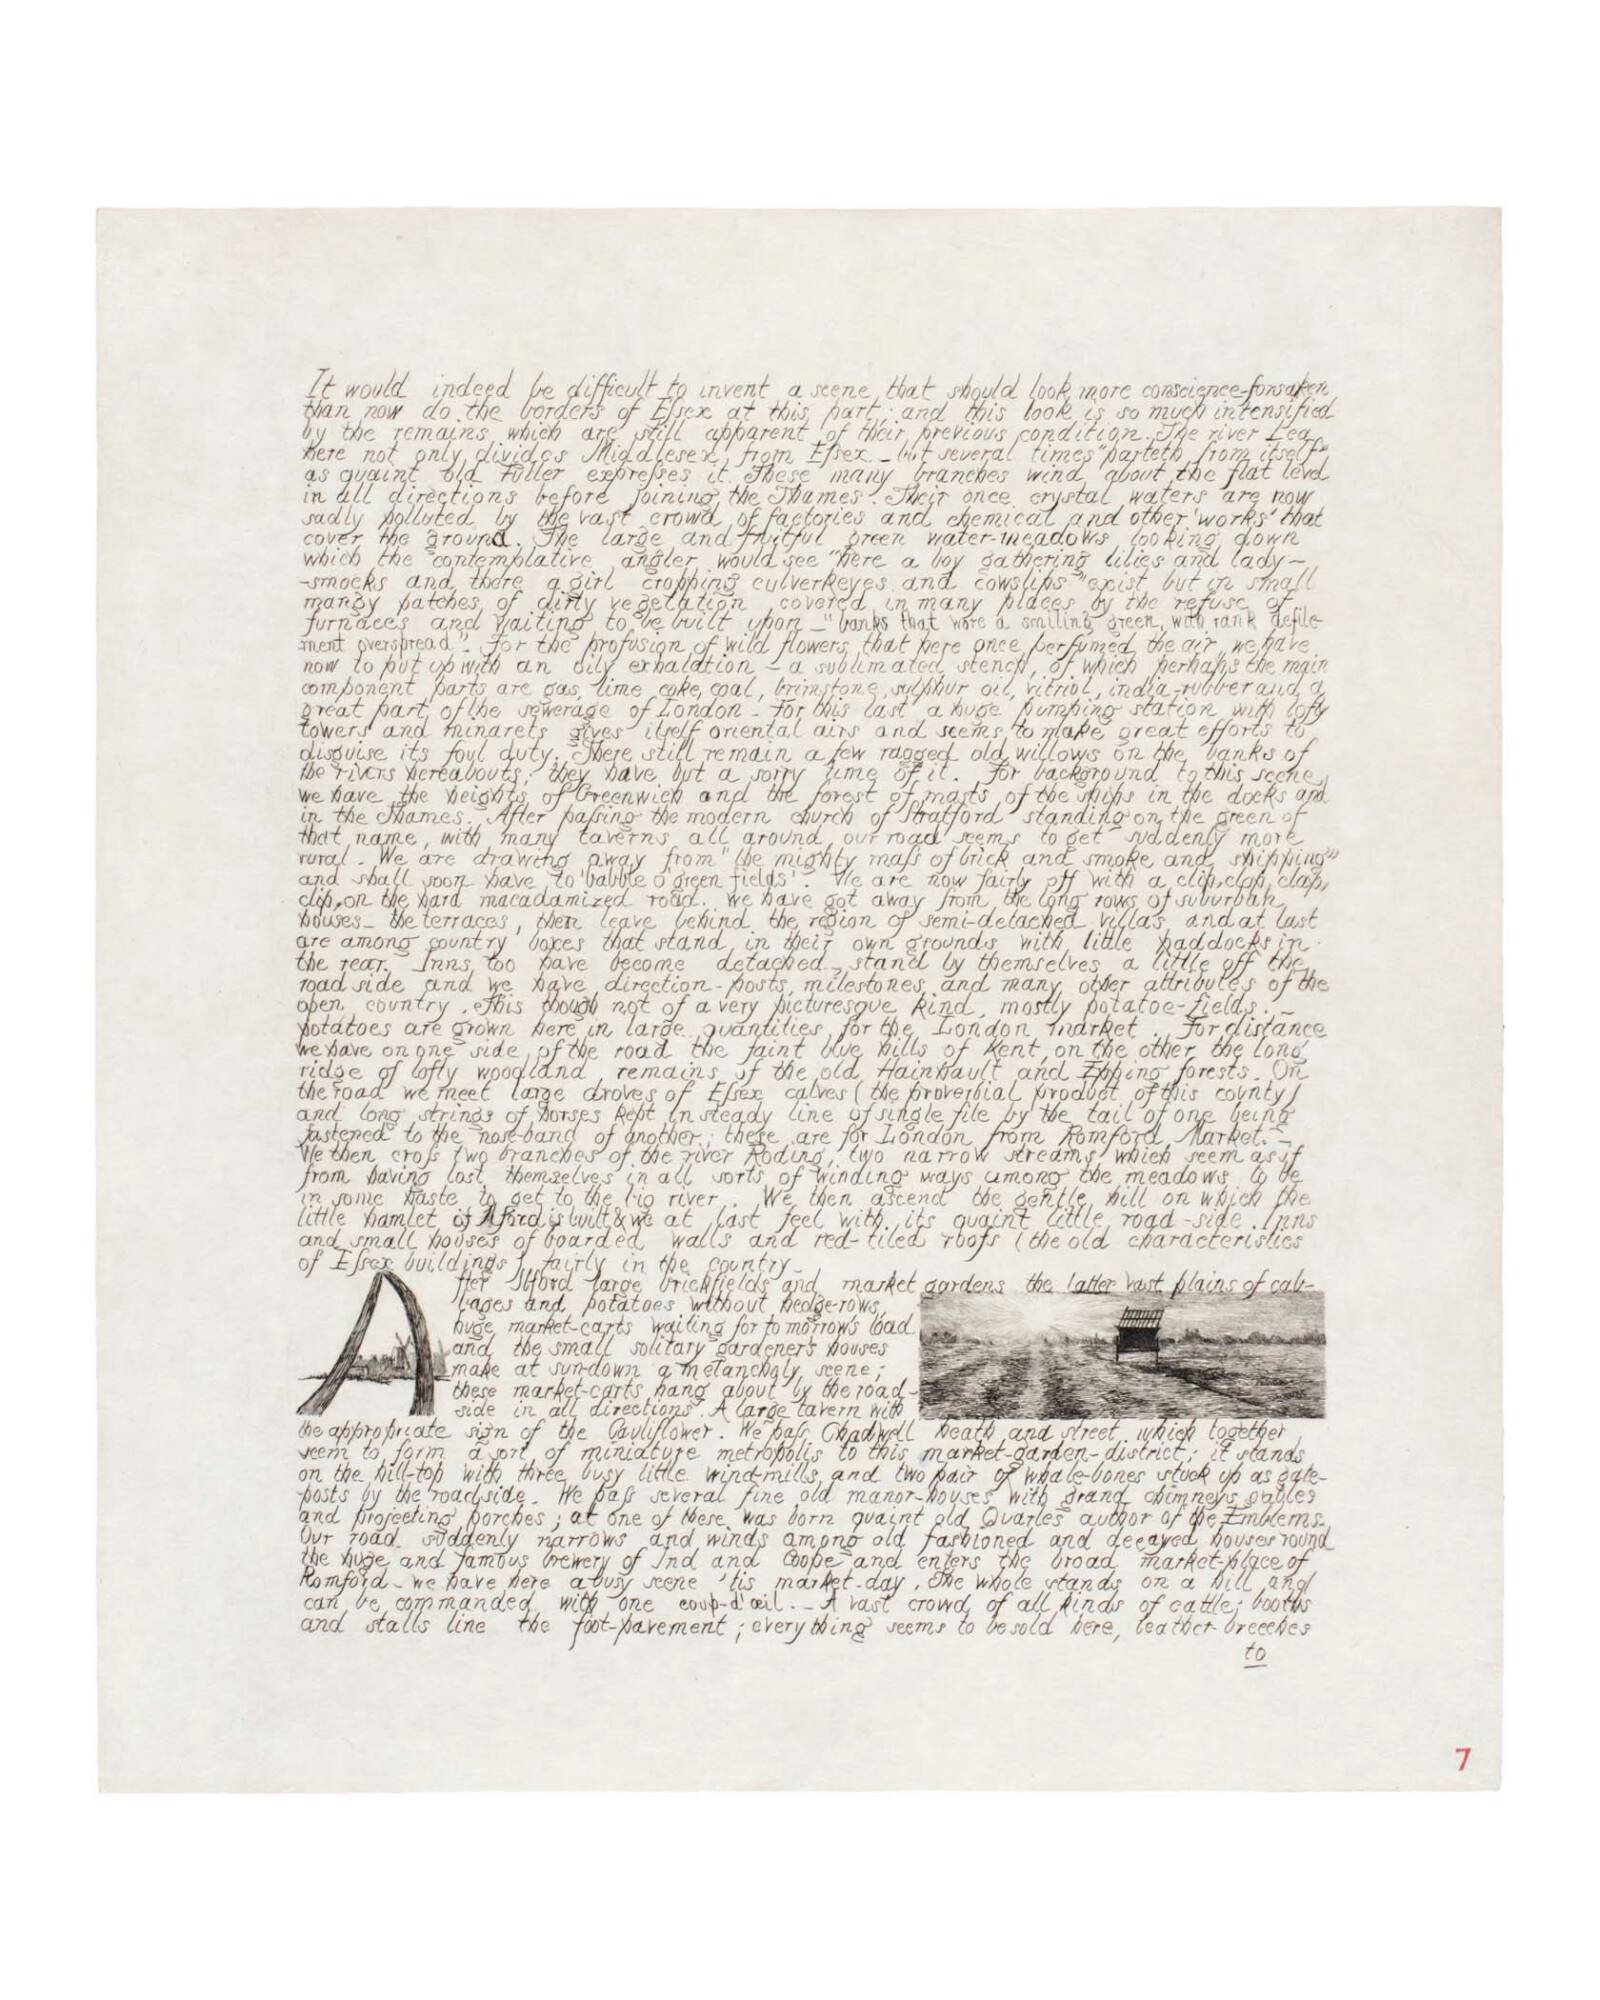 It would indeed be difficult to invent a scene, that should look more conscience-forsaken
than now do the borders of Eſsex at this part; and this look is so much intensified
by the remains, which are still apparent of their previous condition. The river Lea
here not only divides Middlesex, from Eſsex – but several times "parteth from itself",
as quaint old Fuller expreſses it. These many branches wind about the flat level
in all directions before joining the Thames. Their once crystal waters are now
sadly polluted by the vast crowd of factories and chemical and other 'works' that
cover the ground. The large and fruitful green water-meadows looking down
which the contemplative angler would see "here a boy gathering lilies and lady-
-smocks and there a girl cropping culverkeyes and cowslips" exist but in small
mangy patches of dirty vegetation covered in many places by the refuse of
furnaces and waiting to be built upon – "banks that wore a smiling green, with rank defile-
ment overspread". For the profusion of wild flowers that here once perfumed the air, we have
now to put up with an oily exhalation – a sublimated stench, of which perhaps the main
component parts are gas, lime, coke, coal, brimstone, sulphur oil, vitriol, india-rubber and a
great part of the sewerage of London – For this last a huge pumping station with lofty
towers and minarets gives itself oriental airs and seems to make great efforts to
disguise its foul duty. There still remain a few ragged old willows on the banks of
the rivers hereabouts; they have but a sorry time of it. For background to this scene,
we have the heights of Greenwich and the forest of masts of the ships in the docks and
in the Thames. After paſsing the modern church of Stratford standing on the green of
that name, with many taverns all around, our road seems to get suddenly more
rural – We are drawing away from "the mighty maſs of brick and smoke and shipping"
and shall soon have to 'babble o' green fields'. We are now fairly off with a clip, clop, clap,
clip, on the hard macadamized road. we have got away from the long rows of suburban
houses – the terraces, then leave behind the region of semi-detached villas and at last
are among country boxes that stand in their own grounds with little paddocks in
the rear. Inns, too have become detached – stand by themselves a little off the
road side and we have direction-posts, milestones, and many other attributes of the
open country. This though not of a very picturesque kind, mostly potatoe-fields. –
potatoes are grown here in large quantities for the London market. For distance
we have on one side of the road the faint blue hills of Kent, on the other the long
ridge of lofty woodland remains of the old Hainhault and Epping forests. On
the road we meet large droves of Eſsex calves (the proverbial product of this county)
and long strings of horses kept in steady line of single file by the tail of one being
fastened to the nose-band of another; these are for London from Romford Market. –
We then croſs two branches of the river Roding, two narrow streams which seem as if
from having lost themselves in all sorts of winding ways among the meadows to be
in some haste to get to the big river. We then ascend the gentle hill on which the
little hamlet of Ilford is built & we at last feel with its quaint little road-side Inns
and small houses of boarded walls and red-tiled roofs (the old characteristics
of Eſsex buildings) fairly in the country –
After Ilford large brickfields and market gardens the latter vast plains of cab-
bages and potatoes without hedge-rows,
huge market-carts waiting for to morrow's load
and the small solitary gardener's houses
make at sun-down a melancholy scene;
these market-carts hang about by the road-
side in all directions. A large tavern with
the appropriate sign of the Cauliflower. We paſs Chadwell Heath and street which together
seem to form a sort of miniature metropolis to this market-garden-district; it stands
on the hill-top with three busy little wind-mills and two pair of whale-bones stuck up as gate-
-posts by the roadside. We paſs several fine old manor-houses with grand chimneys gables
and projecting porches; at one of these was born quaint old Quarles author of the Emblems.
Our road suddenly narrows and winds among old fashioned and decayed houses round
the huge and famous brewery of Ind and Coope and enters the broad market-place of
Romford – we have here a busy scene 'tis market-day. The whole stands on a hill and
can be commanded with one coup-d'œil. – A vast crowd of all kinds of cattle; booths
and stalls line the foot-pavement; every thing seems to be sold here, leather-breeches
to
7